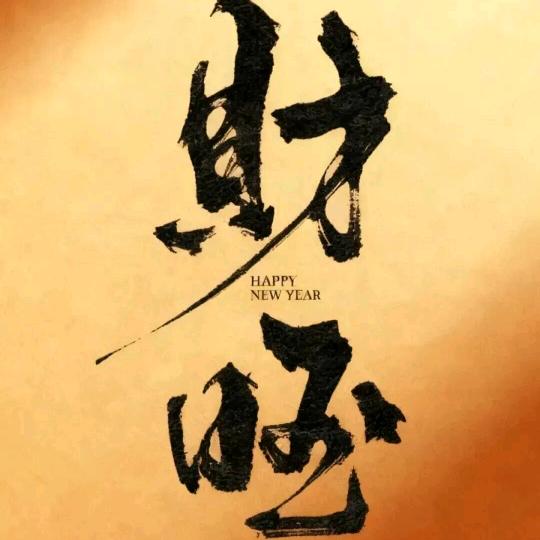 財
HAPPY
NEW YEAR
旺